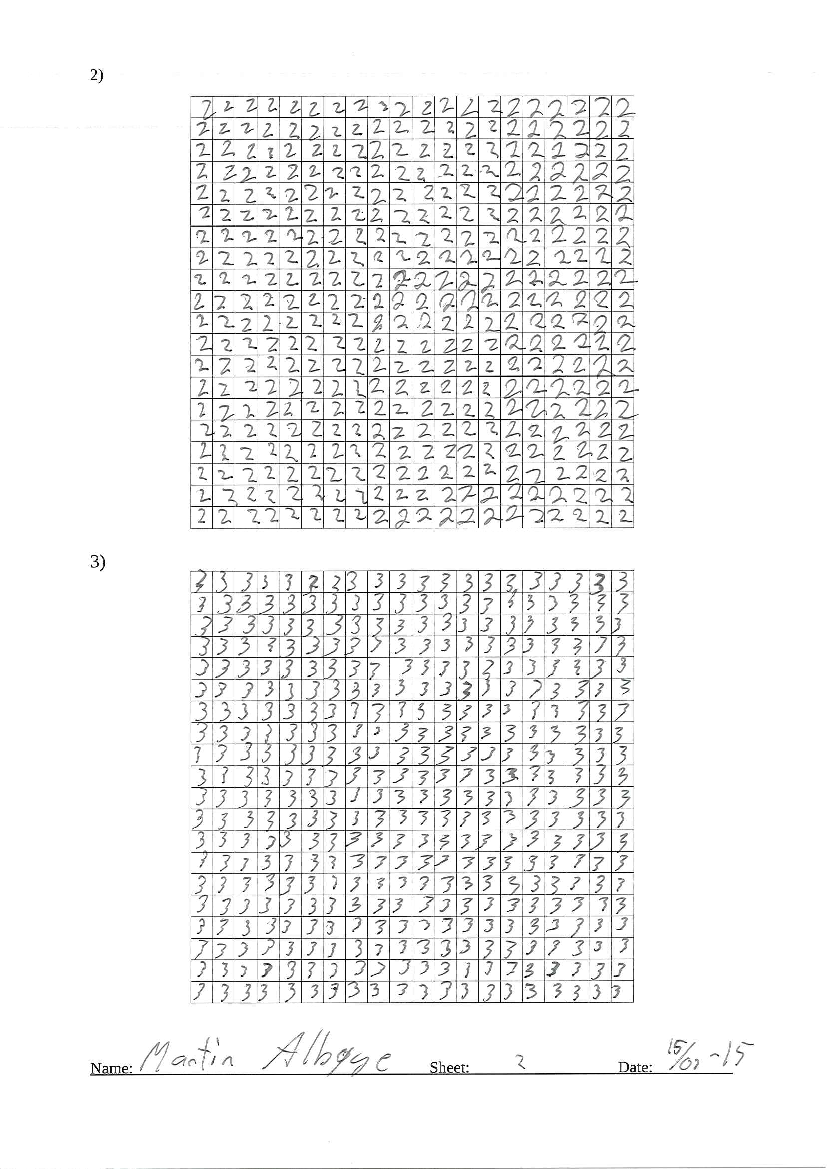 2)
2 2 2 2 2 2 2 2 2 2 2 2 2 2 2 2 2 2 2 2
2 2 2 2 2 2 2 2 2 2 2 2 2 2 2 2 2 2 2 2
2 2 2 2 2 2 2 2 2 2 2 2 2 2 2 2 2 2 2 2
2 2 2 2 2 2 2 2 2 2 2 2 2 2 2 2 2 2 2 2
2 2 2 2 2 2 2 2 2 2 2 2 2 2 2 2 2 2 2 2
2 2 2 2 2 2 2 2 2 2 2 2 2 2 2 2 2 2 2 2
2 2 2 2 2 2 2 2 2 2 2 2 2 2 2 2 2 2 2 2
2 2 2 2 2 2 2 2 2 2 2 2 2 2 2 2 2 2 2 2
2 2 2 2 2 2 2 2 2 2 2 2 2 2 2 2 2 2 2 2
2 2 2 2 2 2 2 2 2 2 2 2 2 2 2 2 2 2 2 2
2 2 2 2 2 2 2 2 2 2 2 2 2 2 2 2 2 2 2 2
2 2 2 2 2 2 2 2 2 2 2 2 2 2 2 2 2 2 2 2
2 2 2 2 2 2 2 2 2 2 2 2 2 2 2 2 2 2 2 2
2 2 2 2 2 2 2 2 2 2 2 2 2 2 2 2 2 2 2 2
2 2 2 2 2 2 2 2 2 2 2 2 2 2 2 2 2 2 2 2
2 2 2 2 2 2 2 2 2 2 2 2 2 2 2 2 2 2 2 2
2 2 2 2 2 2 2 2 2 2 2 2 2 2 2 2 2 2 2 2
2 2 2 2 2 2 2 2 2 2 2 2 2 2 2 2 2 2 2 2
2 2 2 2 2 2 2 2 2 2 2 2 2 2 2 2 2 2 2 2
2 2 2 2 2 2 2 2 2 2 2 2 2 2 2 2 2 2 2 2
3)
3 3 3 3 3 3 3 3 3 3 3 3 3 3 3 3 3 3 3 3
3 3 3 3 3 3 3 3 3 3 3 3 3 3 3 3 3 3 3 3
3 3 3 3 3 3 3 3 3 3 3 3 3 3 3 3 3 3 3 3
3 3 3 3 3 3 3 3 3 3 3 3 3 3 3 3 3 3 3 3
3 3 3 3 3 3 3 3 3 3 3 3 3 3 3 3 3 3 3 3
3 3 3 3 3 3 3 3 3 3 3 3 3 3 3 3 3 3 3 3
3 3 3 3 3 3 3 3 3 3 3 3 3 3 3 3 3 3 3 3
3 3 3 3 3 3 3 3 3 3 3 3 3 3 3 3 3 3 3 3
3 3 3 3 3 3 3 3 3 3 3 3 3 3 3 3 3 3 3 3
3 3 3 3 3 3 3 3 3 3 3 3 3 3 3 3 3 3 3 3
3 3 3 3 3 3 3 3 3 3 3 3 3 3 3 3 3 3 3 3
3 3 3 3 3 3 3 3 3 3 3 3 3 3 3 3 3 3 3 3
3 3 3 3 3 3 3 3 3 3 3 3 3 3 3 3 3 3 3 3
3 3 3 3 3 3 3 3 3 3 3 3 3 3 3 3 3 3 3 3
3 3 3 3 3 3 3 3 3 3 3 3 3 3 3 3 3 3 3 3
3 3 3 3 3 3 3 3 3 3 3 3 3 3 3 3 3 3 3 3
3 3 3 3 3 3 3 3 3 3 3 3 3 3 3 3 3 3 3 3
3 3 3 3 3 3 3 3 3 3 3 3 3 3 3 3 3 3 3 3
3 3 3 3 3 3 3 3 3 3 3 3 3 3 3 3 3 3 3 3
3 3 3 3 3 3 3 3 3 3 3 3 3 3 3 3 3 3 3 3
Name: Martin Albøge Sheet: 2 Date: 15/02-15